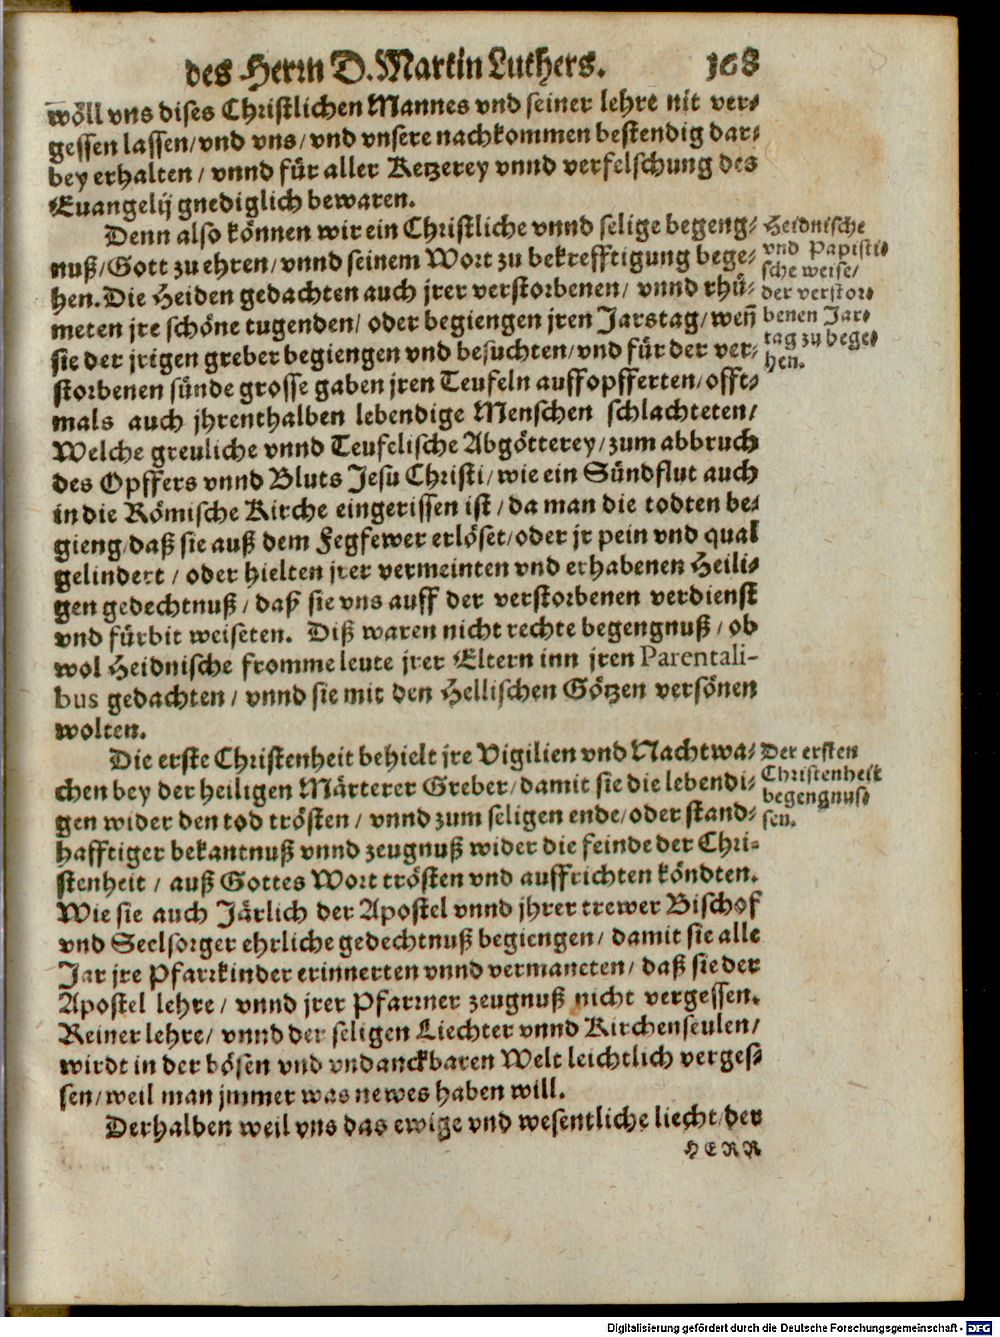 des Herrn D. Martin Luthers. 168
wöll vns dises Christlichen Mannes vnd seiner lehre nit ver⸗
gessen lassen/vnd vns/vnd vnsere nachkommen bestendig dar⸗
bey erhalten/vnnd für aller Ketzerey vnnd verfelschung des
Euangelij gnediglich bewaren.
Denn also können wir ein Christliche vnnd selige begeng⸗
nuß/Gott zu ehren/vnnd seinem Wort zu bekrefftigung bege⸗
hen. Die Heiden gedachten auch jrer verstorbenen/vnnd rhü⸗
meten jre schöne tugenden/oder begiengen jren Jarstag/weñ
sie der jrigen greber begiengen vnd besuchten/vnd für der ver⸗
storbenen sünde grosse gaben jren Teufeln auffopfferten/offt⸗
mals auch jhrenthalben lebendige Menschen schlachteten/
Welche greuliche vnnd Teufelische Abgötterey/zum abbruch
des Opffers vnnd Bluts Jesu Christi/wie ein Sündflut auch
in die Römische Kirche eingerissen ist/da man die todten be⸗
gieng/daß sie auß dem Fegfewer erlöset/oder jr pein vnd qual
gelindert/oder hielten jrer vermeinten vnd erhabenen Heili⸗
gen gedechtnuß/daß sie vns auff der verstorbenen verdienst
vnd fürbit weiseten. Diß waren nicht rechte begengnuß/ob
wol Heidnische fromme leute jrer Eltern inn jren Parentali-
bus gedachten/vnnd sie mit den Hellischen Götzen versönen
wolten.
Heidnische
vnd Papisti⸗
sche weise/
der verstor⸗
benen Jar⸗
tag zu bege⸗
hen.
Die erste Christenheit behielt jre Vigilien vnd Nachtwa⸗
chen bey der heiligen Märterer Greber/damit sie die lebendi⸗
gen wider den tod trösten/vnnd zum seligen ende/oder stand⸗
hafftiger bekantnuß vnnd zeugnuß wider die feinde der Chri⸗
stenheit/auß Gottes Wort trösten vnd auffrichten köndten.
Wie sie auch Järlich der Apostel vnnd jhrer trewer Bischof
vnd Seelsorger ehrliche gedechtnuß begiengen/damit sie alle
Jar jre Pfarrkinder erinnerten vnnd vermaneten/daß sie der
Apostel lehre/vnnd jrer Pfarrner zeugnuß nicht vergessen.
Reiner lehre/vnnd der seligen Liechter vnnd Kirchenseulen/
wirdt in der bösen vnd vndanckbaren Welt leichtlich verges⸗
sen/weil man jmmer was newes haben will.
Der ersten
Christenheit
begengnus⸗
sen.
Derhalben weil vns das ewige vnd wesentliche liecht/der
HERR
Digitalisierung gefördert durch die Deutsche Forschungsgemeinschaft - DFG